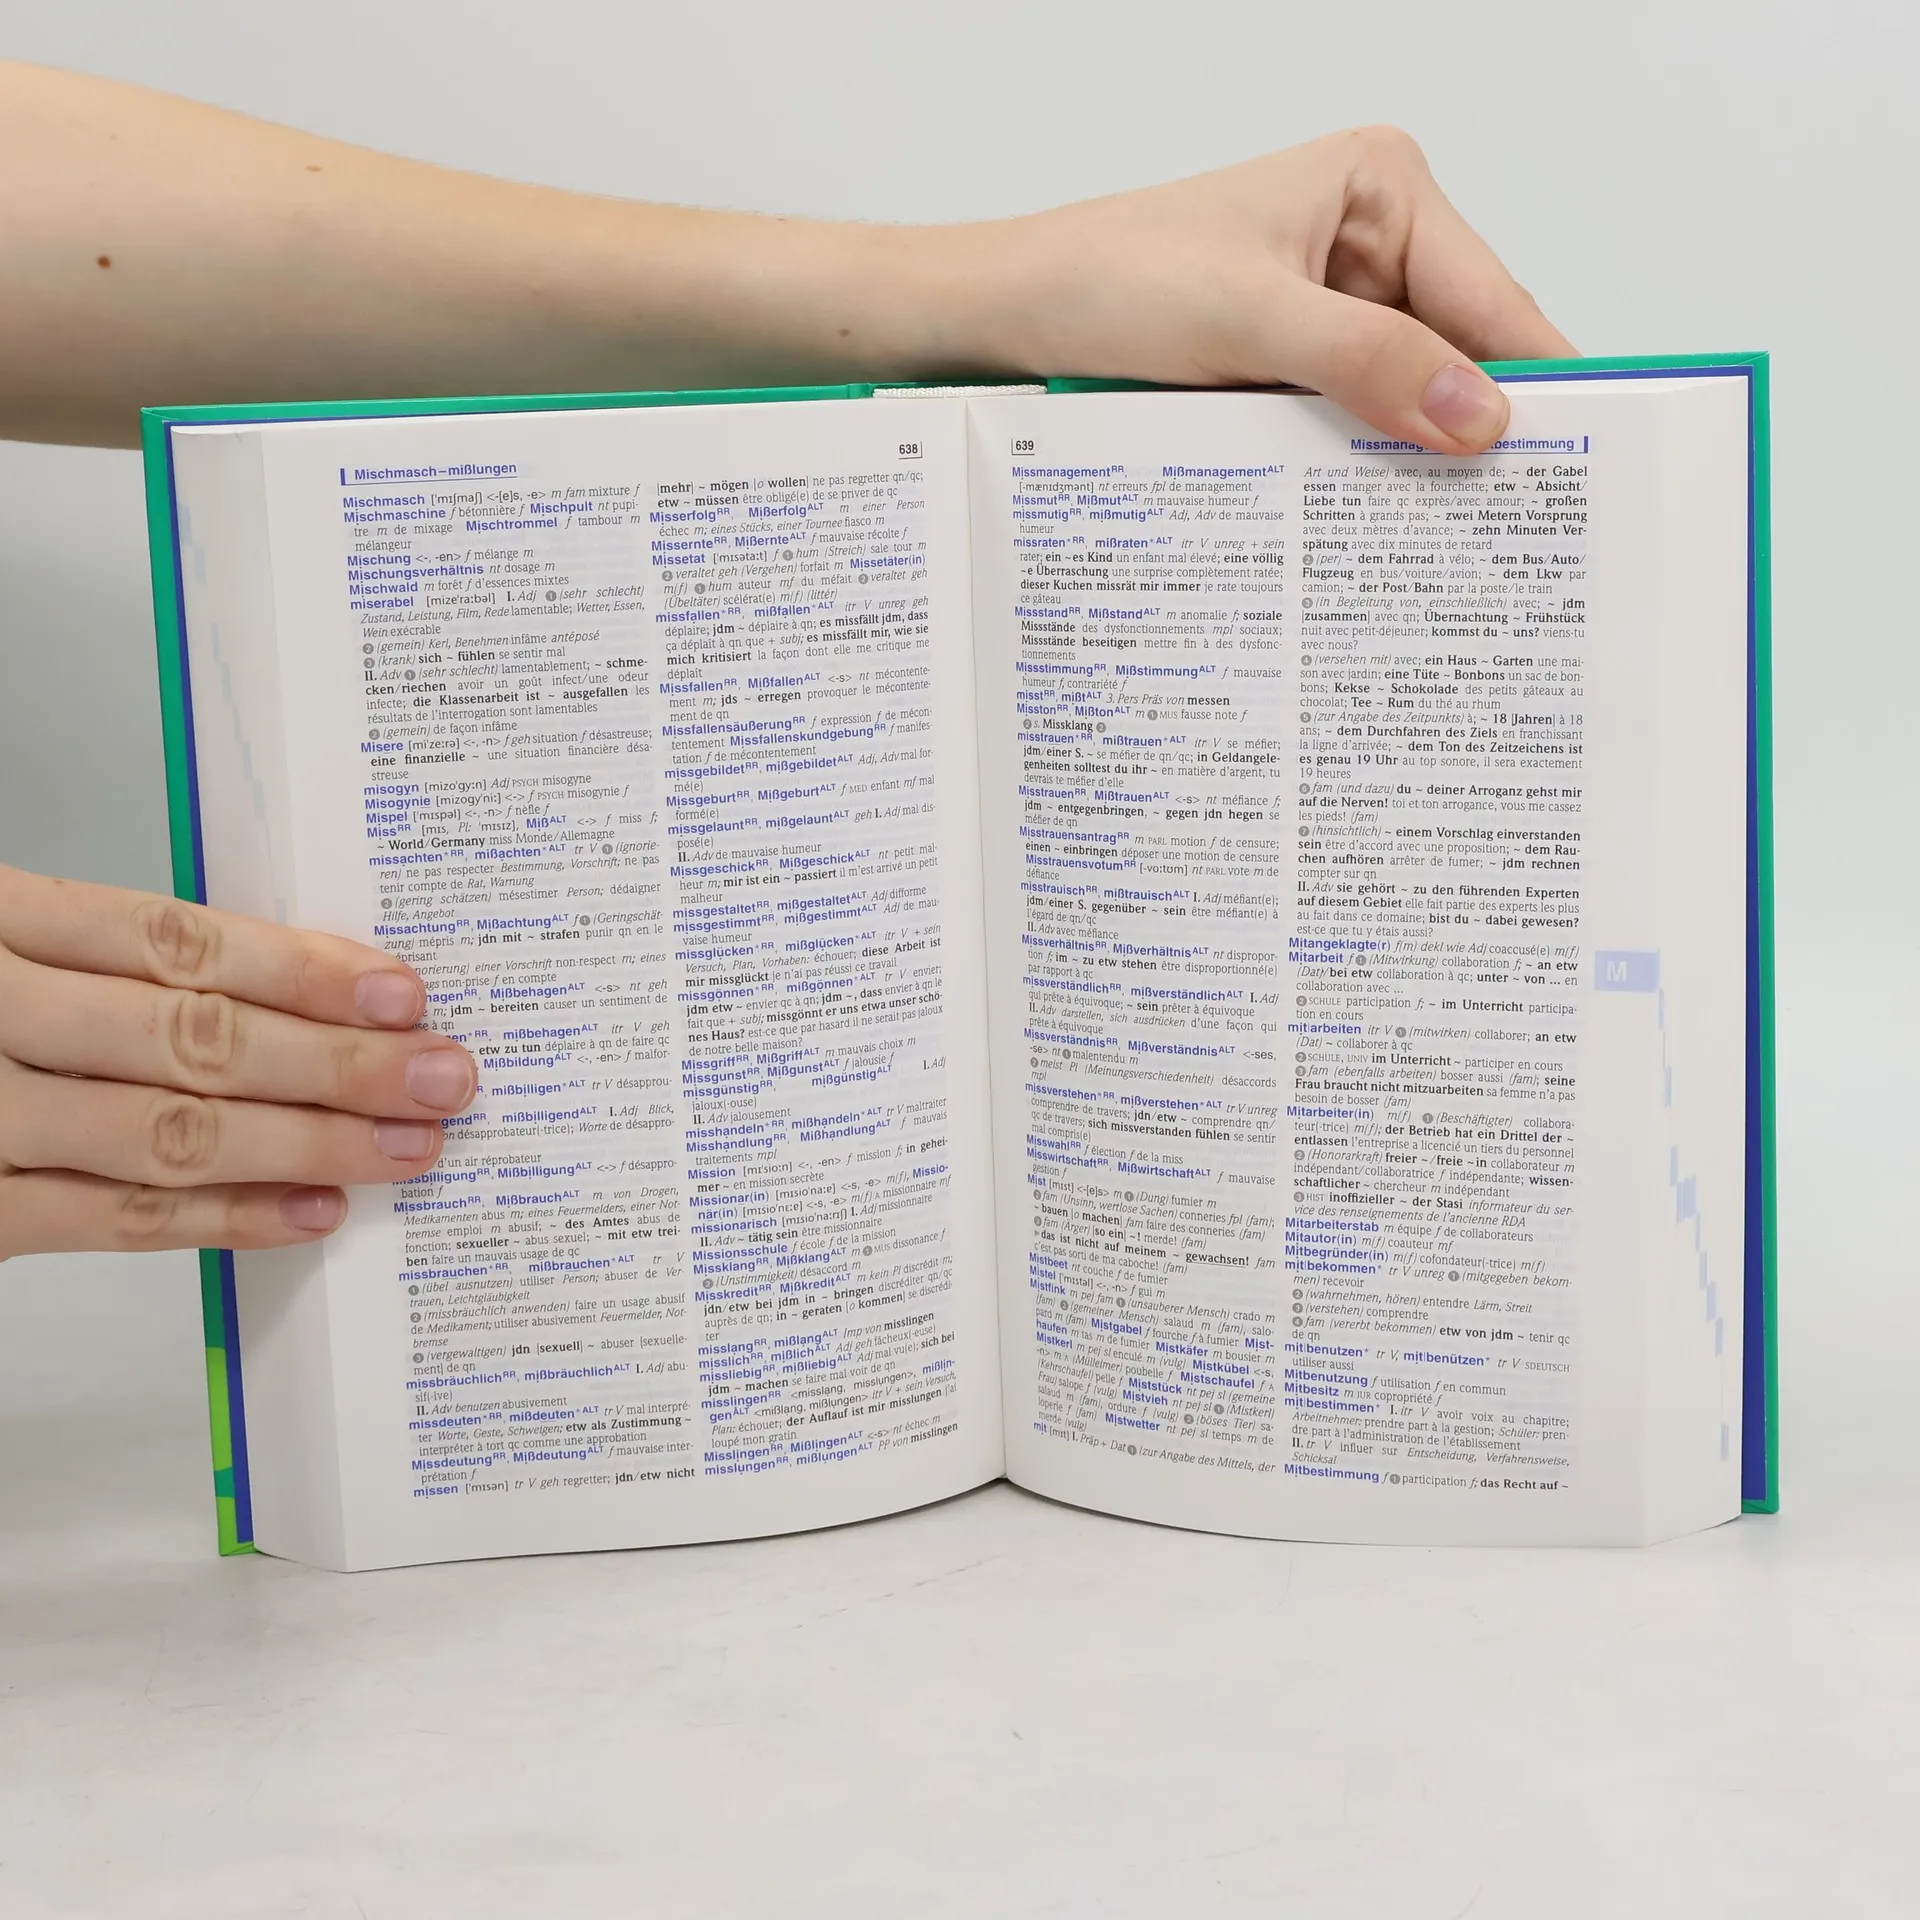 Mischmasch–mißlungen
638
Mischmasch ['mɪʃmaʃ] <-[e]s, -e> m fam mixture f
Mischmaschine f bétonnière f Mischpult nt pupi-
tre m de mixage Mischtrommel f tambour m
mélangeur
Mischung <-, -en> f mélange m
Mischungsverhältnis nt dosage m
Mischwald m forêt f d'essences mixtes
miserabel [mizə'ra:bəl] I. Adj ❶ (sehr schlecht)
Zustand, Leistung, Film, Rede lamentable; Wetter, Essen,
Wein exécrable
❷ (gemein) Kerl, Benehmen infâme antéposé
❸ (krank) sich ~ fühlen se sentir mal
II. Adv ❶ (sehr schlecht) lamentablement; ~ schme-
cken/riechen avoir un goût infect/une odeur
infecte; die Klassenarbeit ist ~ ausgefallen les
résultats de l'interrogation sont lamentables
❷ (gemein) de façon infâme
Misere [mi'ze:rə] <-, -n> f geh situation f désastreuse;
eine finanzielle ~ une situation financière désa-
streuse
misogyn [mizo'gy:n] Adj PSYCH misogyne
Misogynie [mizogy'ni:] <-> f PSYCH misogynie f
Mispel ['mɪspəl] <-, -n> f nèfle f
Miss^RR [mɪs, Pl: 'mɪsɪz], Miß^ALT <-> f miss f;
~ World/Germany miss Monde/Allemagne
missachten*^RR, mißachten*^ALT tr V ❶ (ignorie-
ren) ne pas respecter Bestimmung, Vorschrift; ne pas
tenir compte de Rat, Warnung
❷ (gering schätzen) mésestimer Person; dédaigner
Hilfe, Angebot
Missachtung^RR, Mißachtung^ALT f ❶ (Geringschät-
zung) mépris m; jdn mit ~ strafen punir qn en le
éprisant
norierung) einer Vorschrift non-respect m; eines
ags non-prise f en compte
hagen^RR, Mißbehagen^ALT <-s> nt geh
e m; jdm ~ bereiten causer un sentiment de
se à qn
en*^RR, mißbehagen^ALT itr V geh
~ etw zu tun déplaire à qn de faire qc
, Mißbildung^ALT <-, -en> f malfor-
, mißbilligen*^ALT tr V désapprou-
gend^RR, mißbilligend^ALT I. Adj Blick,
on désapprobateur(-trice); Worte de désappro-
d'un air réprobateur
Missbilligung^RR, Mißbilligung^ALT <-> f désappro-
bation f
Missbrauch^RR, Mißbrauch^ALT m von Drogen,
Medikamenten abus m; eines Feuermelders, einer Not-
bremse emploi m abusif; ~ des Amtes abus de
fonction; sexueller ~ abus sexuel; ~ mit etw trei-
ben faire un mauvais usage de qc
missbrauchen*^RR, mißbrauchen*^ALT tr V
❶ (übel ausnutzen) utiliser Person; abuser de Ver-
trauen, Leichtgläubigkeit
❷ (missbräuchlich anwenden) faire un usage abusif
de Medikament; utiliser abusivement Feuermelder, Not-
bremse
❸ (vergewaltigen) jdn [sexuell] ~ abuser [sexuelle-
ment] de qn
missbräuchlich^RR, mißbräuchlich^ALT I. Adj abu-
sif(-ive)
II. Adv benutzen abusivement
missdeuten*^RR, mißdeuten*^ALT tr V mal interpré-
ter Worte, Geste, Schweigen; etw als Zustimmung ~
interpréter à tort qc comme une approbation
Missdeutung^RR, Mißdeutung^ALT f mauvaise inter-
prétation f
missen ['mɪsən] tr V geh regretter; jdn/etw nicht
[mehr] ~ mögen [o wollen] ne pas regretter qn/qc;
etw ~ müssen être obligé(e) de se priver de qc
Misserfolg^RR, Mißerfolg^ALT m einer Person
échec m; eines Stücks, einer Tournee fiasco m
Missernte^RR, Mißernte^ALT f mauvaise récolte f
Missetat ['mɪsəta:t] f ❶ hum (Streich) sale tour m
❷ veraltet geh (Vergehen) forfait m Missetäter(in)
m(f) ❶ hum auteur mf du méfait ❷ veraltet geh
(Übeltäter) scélérat(e) m(f) (littér)
missfallen*^RR, mißfallen*^ALT itr V unreg geh
déplaire; jdm ~ déplaire à qn; es missfällt jdm, dass
ça déplaît à qn que + subj; es missfällt mir, wie sie
mich kritisiert la façon dont elle me critique me
déplaît
Missfallen^RR, Mißfallen^ALT <-s> nt mécontente-
ment m; jds ~ erregen provoquer le mécontente-
ment de qn
Missfallensäußerung^RR f expression f de mécon-
tentement Missfallenskundgebung^RR f manifes-
tation f de mécontentement
missgebildet^RR, mißgebildet^ALT Adj, Adv mal for-
mé(e)
Missgeburt^RR, Mißgeburt^ALT f MED enfant mf mal
formé(e)
missgelaunt^RR, mißgelaunt^ALT geh I. Adj mal dis-
posé(e)
II. Adv de mauvaise humeur
Missgeschick^RR, Mißgeschick^ALT nt petit mal-
heur m; mir ist ein ~ passiert il m'est arrivé un petit
malheur
missgestaltet^RR, mißgestaltet^ALT Adj difforme
missgestimmt^RR, mißgestimmt^ALT Adj de mau-
vaise humeur
missglücken*^RR, mißglücken*^ALT itr V + sein
Versuch, Plan, Vorhaben: échouer; diese Arbeit ist
mir missglückt je n'ai pas réussi ce travail
missgönnen*^RR, mißgönnen*^ALT tr V envier;
jdm etw ~ envier qc à qn; jdm ~, dass envier à qn le
fait que + subj; missgönnt er uns etwa unser schö-
nes Haus? est-ce que par hasard il ne serait pas jaloux
de notre belle maison?
Missgriff^RR, Mißgriff^ALT m mauvais choix m
Missgunst^RR, Mißgunst^ALT f jalousie f
missgünstig^RR, mißgünstig^ALT I. Adj
jaloux(-ouse)
II. Adv jalousement
misshandeln*^RR, mißhandeln*^ALT tr V maltraiter
Misshandlung^RR, Mißhandlung^ALT f mauvais
traitements mpl
Mission [mɪ'sio:n] <-, -en> f mission f; in gehei-
mer ~ en mission secrète
Missionar(in) [mɪsio'na:ɐ] <-s, -e> m(f), Missio-
när(in) [mɪsio'nɛ:ɐ] <-s, -e> m(f) A missionnaire mf
missionarisch [mɪsio'na:rɪʃ] I. Adj missionnaire
II. Adv ~ tätig sein être missionnaire
Missionsschule f école f de la mission
Missklang^RR, Mißklang^ALT m ❶ MUS dissonance f
❷ (Unstimmigkeit) désaccord m
Misskredit^RR, Mißkredit^ALT m kein Pl discrédit m;
jdn/etw bei jdm in ~ bringen discréditer qn/qc
auprès de qn; in ~ geraten [o kommen] se discrédi-
ter
misslang^RR, mißlang^ALT Imp von misslingen
misslich^RR, mißlich^ALT Adj geh fâcheux(-euse)
missliebig^RR, mißliebig^ALT Adj mal vu(e); sich bei
jdm ~ machen se faire mal voir de qn
misslingen^RR <misslang, misslungen>, mißlin-
gen^ALT <mißlang, mißlungen> itr V + sein Versuch,
Plan: échouer; der Auflauf ist mir misslungen j'ai
loupé mon gratin
Misslingen^RR, Mißlingen^ALT <-s> nt échec m
misslungen^RR, mißlungen^ALT PP von misslingen
639
Missmanag
bestimmung
Missmanagement^RR, Mißmanagement^ALT
[-mænɪdʒmənt] nt erreurs fpl de management
Missmut^RR, Mißmut^ALT m mauvaise humeur f
missmutig^RR, mißmutig^ALT Adj, Adv de mauvaise
humeur
missraten*^RR, mißraten*^ALT itr V unreg + sein
rater; ein ~es Kind un enfant mal élevé; eine völlig
~e Überraschung une surprise complètement ratée;
dieser Kuchen missrät mir immer je rate toujours
ce gâteau
Missstand^RR, Mißstand^ALT m anomalie f; soziale
Missstände des dysfonctionnements mpl sociaux;
Missstände beseitigen mettre fin à des dysfonc-
tionnements
Missstimmung^RR, Mißstimmung^ALT f mauvaise
humeur f, contrariété f
misst^RR, mißt^ALT 3. Pers Präs von messen
Misston^RR, Mißton^ALT m ❶ MUS fausse note f
❷ s. Missklang ❷
misstrauen*^RR, mißtrauen*^ALT itr V se méfier;
jdm/einer S. ~ se méfier de qn/qc; in Geldangele-
genheiten solltest du ihr ~ en matière d'argent, tu
devrais te méfier d'elle
Misstrauen^RR, Mißtrauen^ALT <-s> nt méfiance f;
jdm ~ entgegenbringen, ~ gegen jdn hegen se
méfier de qn
Misstrauensantrag^RR m PARL motion f de censure;
einen ~ einbringen déposer une motion de censure
Misstrauensvotum^RR [-vo:tʊm] nt PARL vote m de
défiance
misstrauisch^RR, mißtrauisch^ALT I. Adj méfiant(e);
jdm/einer S. gegenüber ~ sein être méfiant(e) à
l'égard de qn/qc
II. Adv avec méfiance
Missverhältnis^RR, Mißverhältnis^ALT nt dispropor-
tion f; im ~ zu etw stehen être disproportionné(e)
par rapport à qc
missverständlich^RR, mißverständlich^ALT I. Adj
qui prête à équivoque; ~ sein prêter à équivoque
II. Adv darstellen, sich ausdrücken d'une façon qui
prête à équivoque
Missverständnis^RR, Mißverständnis^ALT <-ses,
-se> nt ❶ malentendu m
❷ meist Pl (Meinungsverschiedenheit) désaccords
mpl
missverstehen*^RR, mißverstehen*^ALT tr V unreg
comprendre de travers; jdn/etw ~ comprendre qn/
qc de travers; sich missverstanden fühlen se sentir
mal compris(e)
Misswahl^RR f élection f de la miss
Misswirtschaft^RR, Mißwirtschaft^ALT f mauvaise
gestion f
Mist [mɪst] <-[e]s> m ❶ (Dung) fumier m
❷ fam (Unsinn, wertlose Sachen) conneries fpl (fam);
~ bauen [o machen] fam faire des conneries (fam)
❸ fam (Ärger) [so ein] ~! merde! (fam)
▸ das ist nicht auf meinem ~ gewachsen! fam
c'est pas sorti de ma caboche! (fam)
Mistbeet nt couche f de fumier
Mistel ['mɪstəl] <-, -n> f gui m
Mistfink m pej fam ❶ (unsauberer Mensch) crado m
(fam) ❷ (gemeiner Mensch) salaud m (fam), salo-
pard m (fam) Mistgabel f fourche f à fumier Mist-
haufen m tas m de fumier Mistkäfer m bousier m
Mistkerl m pej sl enculé m (vulg) Mistkübel <-s,
-n> m A (Mülleimer) poubelle f Mistschaufel f A
(Kehrschaufel) pelle f Miststück nt pej sl (gemeine
Frau) salope f (vulg) Mistvieh nt pej sl ❶ (Mistkerl)
salaud m (fam), ordure f (vulg) ❷ (böses Tier) sa-
loperie f (fam) Mistwetter nt pej sl temps m de
merde (vulg)
mit [mɪt] I. Präp + Dat ❶ (zur Angabe des Mittels, der
Art und Weise) avec, au moyen de; ~ der Gabel
essen manger avec la fourchette; etw ~ Absicht/
Liebe tun faire qc exprès/avec amour; ~ großen
Schritten à grands pas; ~ zwei Metern Vorsprung
avec deux mètres d'avance; ~ zehn Minuten Ver-
spätung avec dix minutes de retard
❷ (per) ~ dem Fahrrad à vélo; ~ dem Bus/Auto/
Flugzeug en bus/voiture/avion; ~ dem Lkw par
camion; ~ der Post/Bahn par la poste/le train
❸ (in Begleitung von, einschließlich) avec; ~ jdm
[zusammen] avec qn; Übernachtung ~ Frühstück
nuit avec petit-déjeuner; kommst du ~ uns? viens-tu
avec nous?
❹ (versehen mit) avec; ein Haus ~ Garten une mai-
son avec jardin; eine Tüte ~ Bonbons un sac de bon-
bons; Kekse ~ Schokolade des petits gâteaux au
chocolat; Tee ~ Rum du thé au rhum
❺ (zur Angabe des Zeitpunkts) à; ~ 18 [Jahren] à 18
ans; ~ dem Durchfahren des Ziels en franchissant
la ligne d'arrivée; ~ dem Ton des Zeitzeichens ist
es genau 19 Uhr au top sonore, il sera exactement
19 heures
❻ fam (und dazu) du ~ deiner Arroganz gehst mir
auf die Nerven! toi et ton arrogance, vous me cassez
les pieds! (fam)
❼ (hinsichtlich) ~ einem Vorschlag einverstanden
sein être d'accord avec une proposition; ~ dem Rau-
chen aufhören arrêter de fumer; ~ jdm rechnen
compter sur qn
II. Adv sie gehört ~ zu den führenden Experten
auf diesem Gebiet elle fait partie des experts les plus
au fait dans ce domaine; bist du ~ dabei gewesen?
est-ce que tu y étais aussi?
Mitangeklagte(r) f(m) dekl wie Adj coaccusé(e) m(f)
Mitarbeit f ❶ (Mitwirkung) collaboration f; ~ an etw
(Dat)/bei etw collaboration à qc; unter ~ von ... en
collaboration avec ...
❷ SCHULE participation f; ~ im Unterricht participa-
tion en cours
mit|arbeiten itr V ❶ (mitwirken) collaborer; an etw
(Dat) ~ collaborer à qc
❷ SCHULE, UNIV im Unterricht ~ participer en cours
❸ fam (ebenfalls arbeiten) bosser aussi (fam); seine
Frau braucht nicht mitzuarbeiten sa femme n'a pas
besoin de bosser (fam)
Mitarbeiter(in) m(f) ❶ (Beschäftigter) collabora-
teur(-trice) m(f); der Betrieb hat ein Drittel der ~
entlassen l'entreprise a licencié un tiers du personnel
❷ (Honorarkraft) freier ~/freie ~in collaborateur m
indépendant/collaboratrice f indépendante; wissen-
schaftlicher ~ chercheur m indépendant
❸ HIST inoffizieller ~ der Stasi informateur du ser-
vice des renseignements de l'ancienne RDA
Mitarbeiterstab m équipe f de collaborateurs
Mitautor(in) m(f) coauteur mf
Mitbegründer(in) m(f) cofondateur(-trice) m(f)
mit|bekommen* tr V unreg ❶ (mitgegeben bekom-
men) recevoir
❷ (wahrnehmen, hören) entendre Lärm, Streit
❸ (verstehen) comprendre
❹ fam (vererbt bekommen) etw von jdm ~ tenir qc
de qn
mit|benutzen* tr V, mit|benützen* tr V SDEUTSCH
utiliser aussi
Mitbenutzung f utilisation f en commun
Mitbesitz m JUR copropriété f
mit|bestimmen* I. itr V avoir voix au chapitre;
Arbeitnehmer: prendre part à la gestion; Schüler: pren-
dre part à l'administration de l'établissement
II. tr V influer sur Entscheidung, Verfahrensweise,
Schicksal
Mitbestimmung f ❶ participation f; das Recht auf ~
M